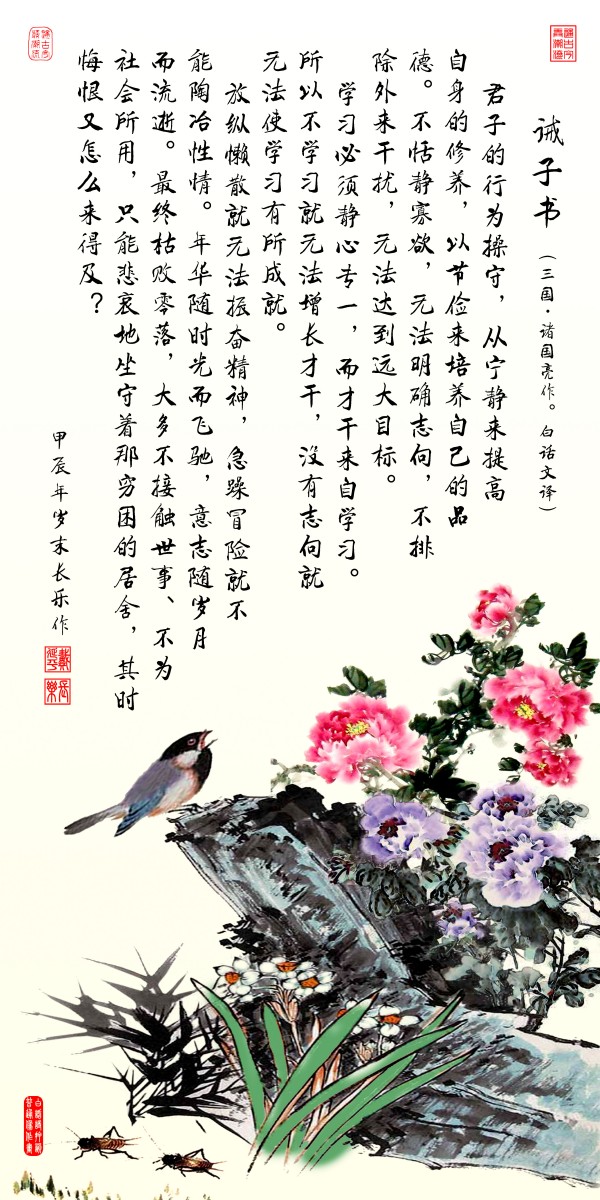 诫子书（三国·诸国亮作。白话文译）
君子的行为操守，从宁静来提高
自身的修养，以节俭来培养自己的品
德。不恬静寡欲，无法明确志向，不排
除外来干扰，无法达到远大目标。
学习必须静心专一，而才干来自学习。
所以不学习就无法增长才干，没有志向就
无法使学习有所成就。
放纵懒散就无法振奋精神，急躁冒险就不
能陶冶性情。年华随时光而飞驰，意志随岁月
而流逝。最终枯败零落，大多不接触世事、不为
社会所用，只能悲哀地坐守着那穷困的居舍，其时
悔恨又怎么来得及？
甲辰年岁末长乐作
長樂